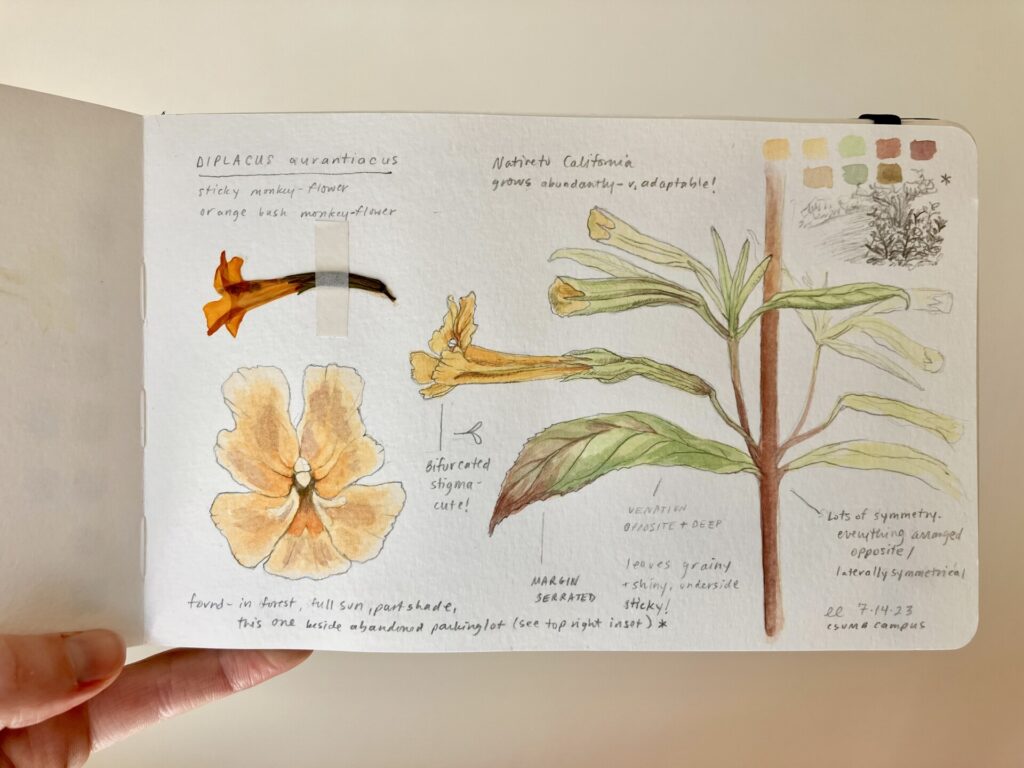 DIPLACUS aurantiacus
sticky monkey-flower
orange bush monkey-flower
Native to California
grows abundantly - v. adaptable!
*
Bifurcated
stigma -
cute!
VENATION
OPPOSITE + DEEP
leaves grainy
+ shiny, underside
sticky!
MARGIN
SERRATED
Lots of symmetry -
everything arranged
opposite /
laterally symmetrical
found - in forest, full sun, part shade,
this one beside abandoned parking lot (see top right inset) *
ee 7-14-23
CSUMB campus